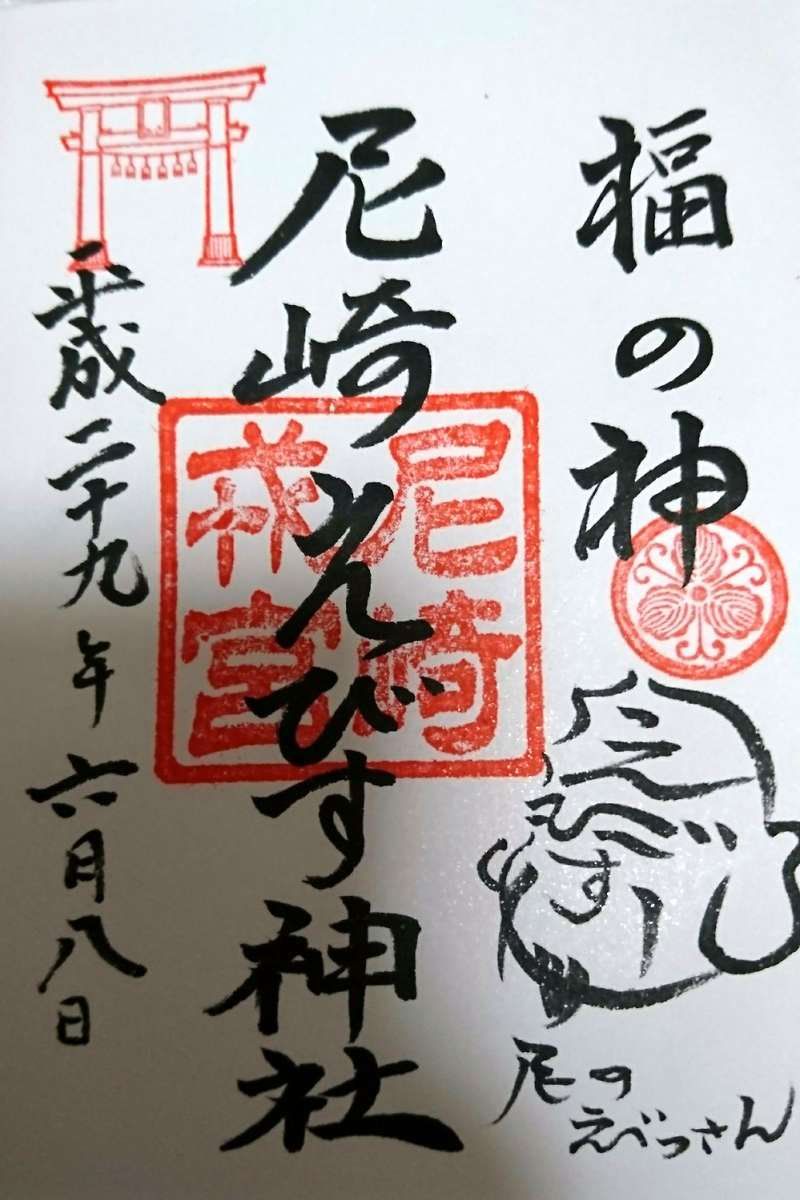 福の神
えびす
尼のえべっさん
尼崎えびす神社
尼崎
戎宮
平成二十九年六月八日